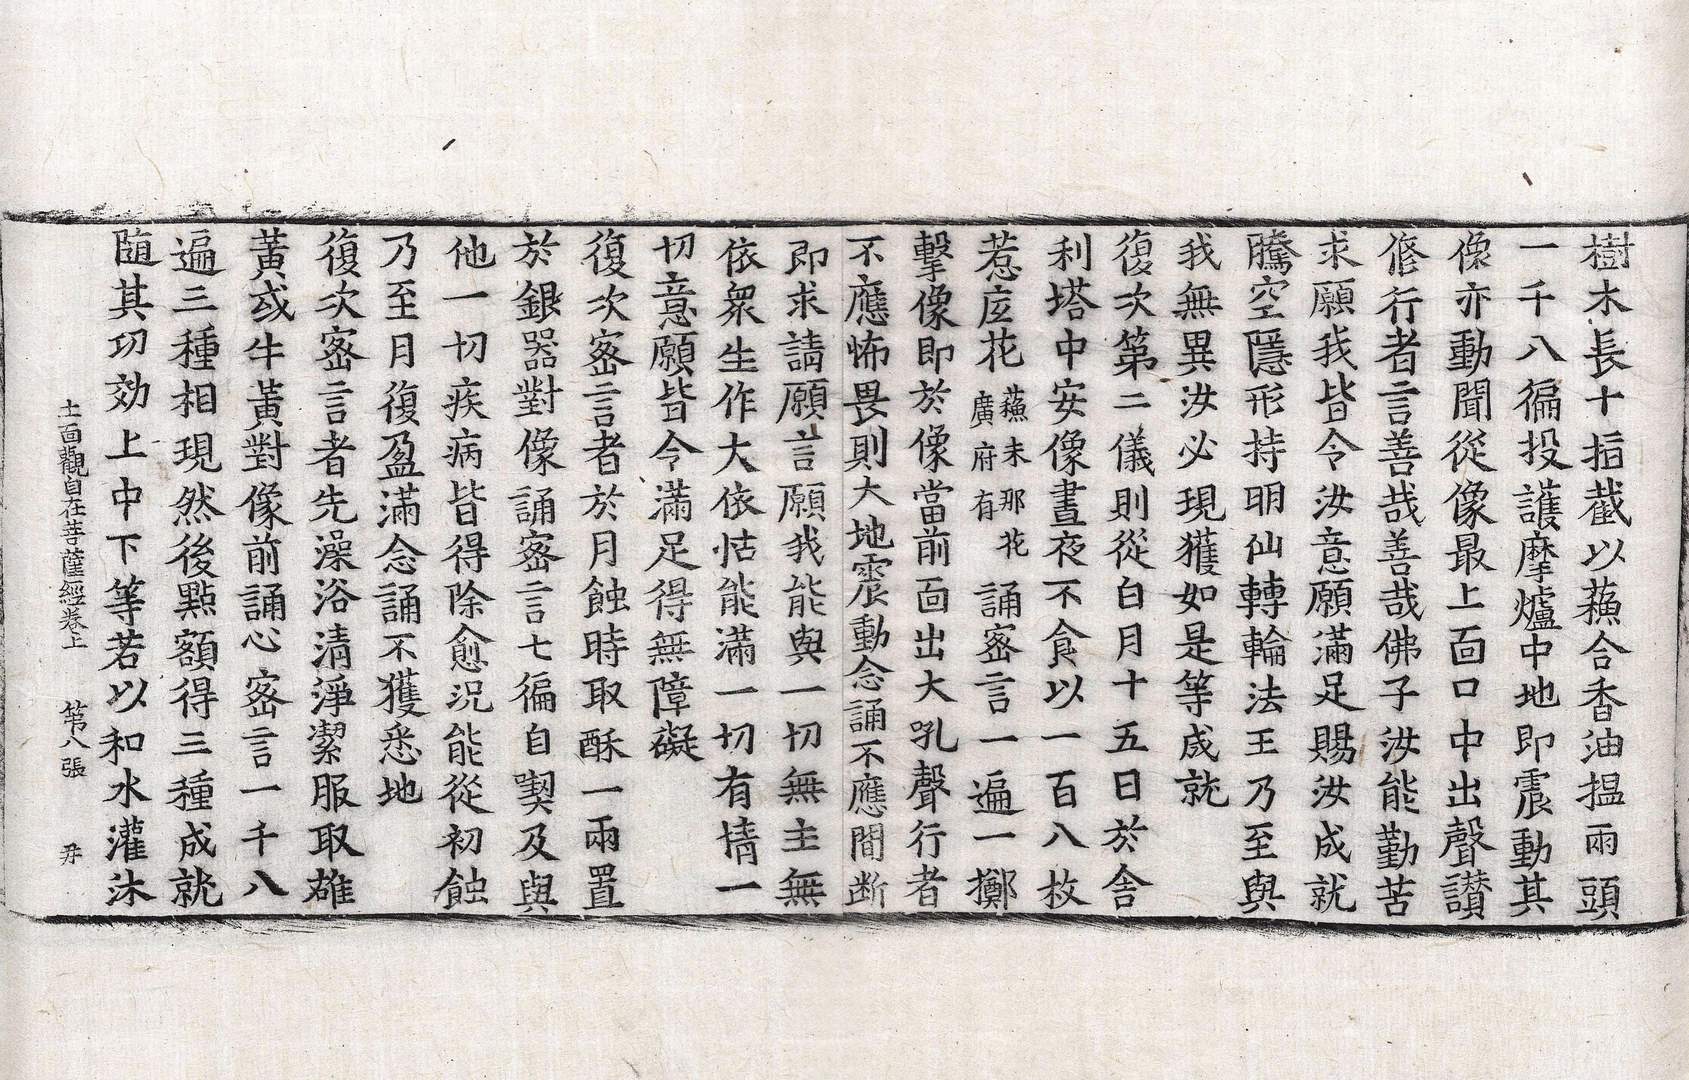 樹木長十指截以蘓合香油搵兩頭
一千八徧投護摩爐中地即震動其
像亦動聞從像最上面口中出聲讃
修行者言善哉善哉佛子汝能勤苦
求願我皆令汝意願滿足賜汝成就
騰空隱形持明仙轉輪法王乃至與
我無異汝必現獲如是等成就
復次第二儀則從白月十五日於舎
利塔中安像晝夜不食以一百八枚
惹㡯花蘓末那花廣府有誦密言一遍一擲
擊像即於像當前面出大吼聲行者
不應怖畏則大地震動念誦不應間断
即求請願言願我能與一切無主無
依衆生作大依怙能滿一切有情一
切意願皆令滿足得無障礙
復次密言者於月蝕時取酥一兩置
於銀器對像誦密言七徧自喫及與
他一切疾病皆得除愈況能從初蝕
乃至月復盈滿念誦不獲悉地
復次密言者先澡浴清淨潔服取雄
黃或牛黃對像前誦心密言一千八
遍三種相現然後點額得三種成就
随其功効上中下等若以和水灌沐
十一面觀自在菩薩經卷上 第八張